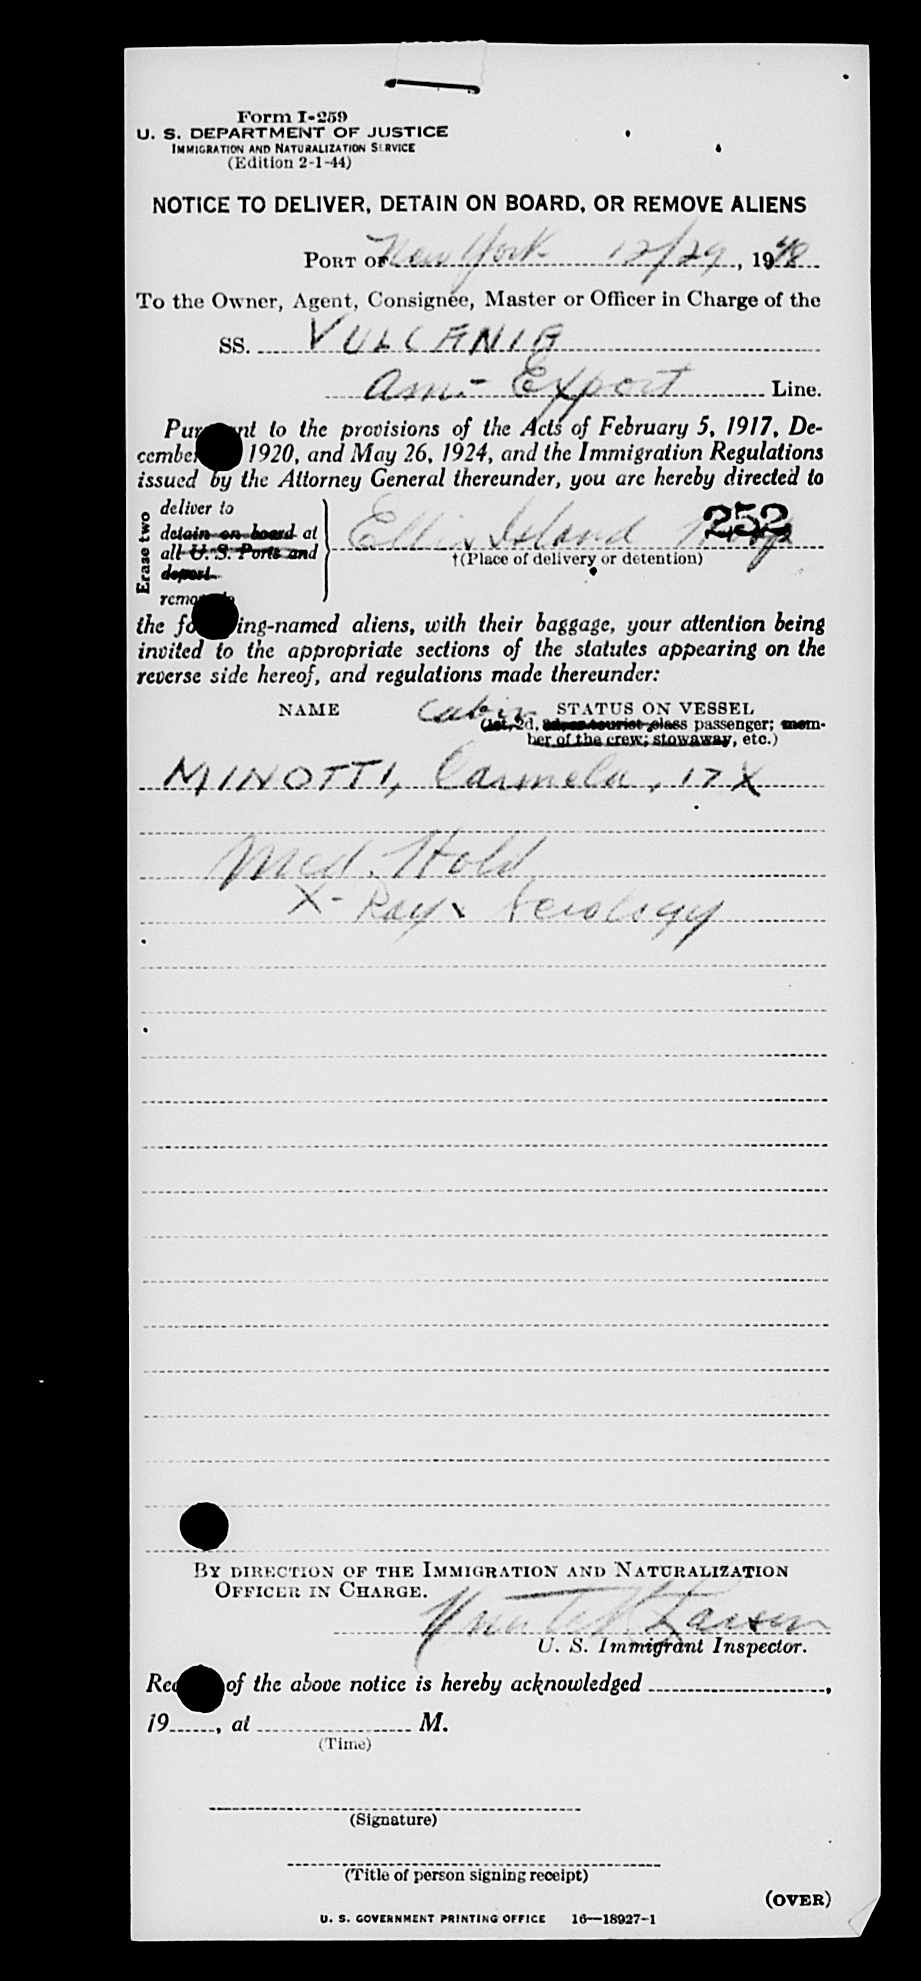 Form I-259
U. S. DEPARTMENT OF JUSTICE
IMMIGRATION AND NATURALIZATION SERVICE
(Edition 2-1-44)
NOTICE TO DELIVER, DETAIN ON BOARD, OR REMOVE ALIENS
PORT OF New York 12/29, 1948
To the Owner, Agent, Consignee, Master or Officer in Charge of the
SS. VULCANIA
Am.- Export Line.
Pur nt to the provisions of the Acts of February 5, 1917, De-
cembe 1920, and May 26, 1924, and the Immigration Regulations
issued by the Attorney General thereunder, you are hereby directed to
Erase two
deliver to
detain on board at
all U. S. Ports and
deport
remo
Ellis Island Hosp
252
†(Place of delivery or detention)
the fo ing-named aliens, with their baggage, your attention being
invited to the appropriate sections of the statutes appearing on the
reverse side hereof, and regulations made thereunder:
NAME Cabin STATUS ON VESSEL
(1st, 2d, 3d, or tourist class passenger; mem-
ber of the crew; stowaway, etc.)
MINOTTI, Carmela, 17 X
Med. Hold
X-Ray & Serology
BY DIRECTION OF THE IMMIGRATION AND NATURALIZATION
OFFICER IN CHARGE.
Larsen
U. S. Immigrant Inspector.
Rec of the above notice is hereby acknowledged ,
19 , at M.
(Time)
(Signature)
(Title of person signing receipt)
(OVER)
U. S. GOVERNMENT PRINTING OFFICE 16—18927-1